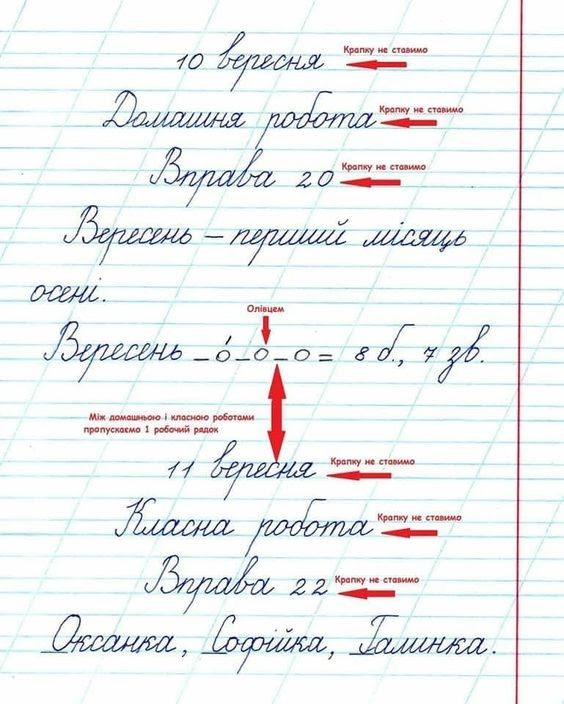 10 вересня
Крапку не ставимо
Домашня робота
Крапку не ставимо
Вправа 20
Крапку не ставимо
Вересень – перший місяць
осені.
Олівцем
Вересень – о́ – о – о = 8 б., 7 зв.
Між домашньою і класною роботами
пропускаємо 1 робочий рядок
11 вересня
Крапку не ставимо
Класна робота
Крапку не ставимо
Вправа 22
Крапку не ставимо
Оксанка, Софійка, Галинка.